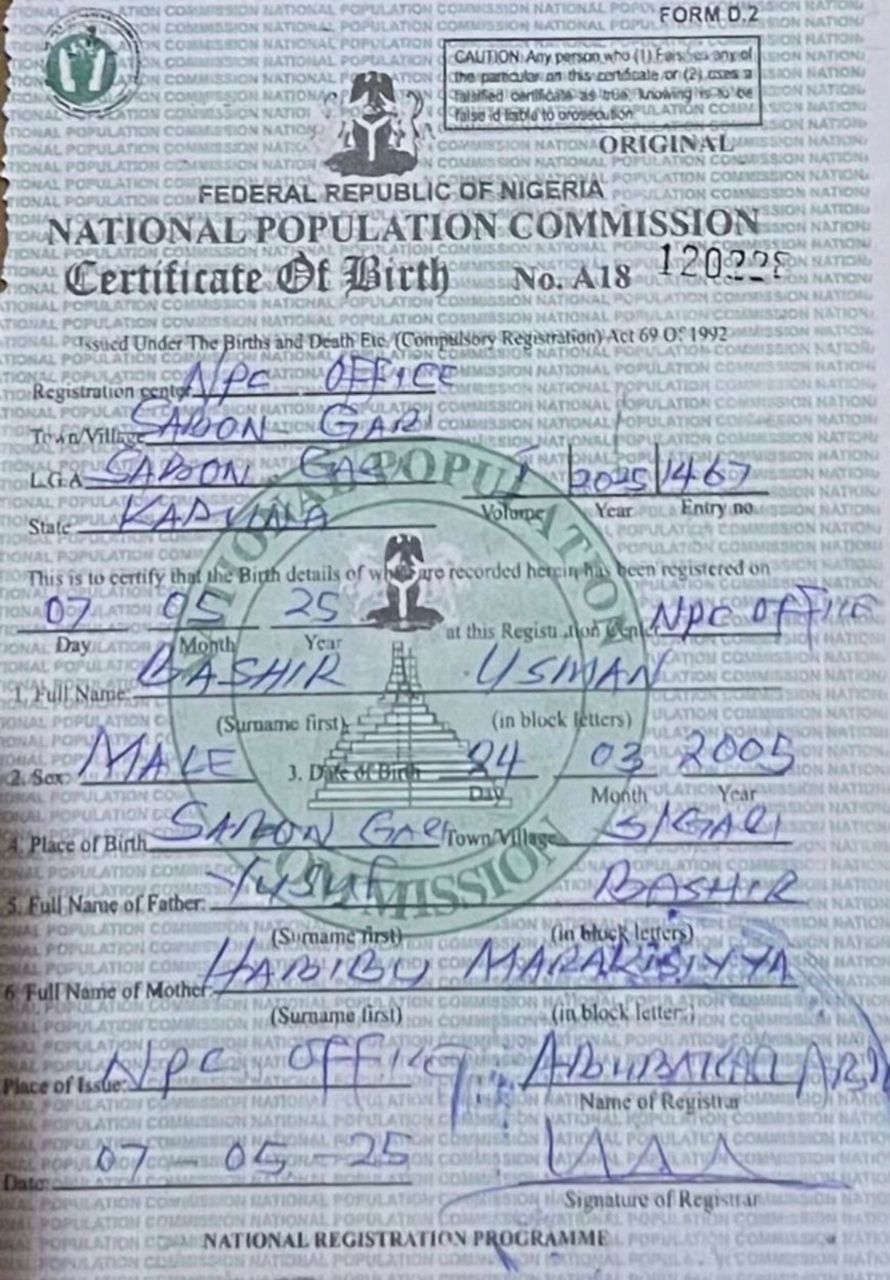 FORM D.2
CAUTION: Any person who (1) Falsifies any of
the particular on this certificate or (2) uses a
falsified certificate as true, knowing is to be
false id liable to prosecution
ORIGINAL
FEDERAL REPUBLIC OF NIGERIA
NATIONAL POPULATION COMMISSION
Certificate Of Birth No. A18
Issued Under The Births and Death Etc. (Compulsory Registration) Act 69 Of 1992
Registration center NPC OFFICE
Town/Village SABON GARI
L.G.A SABON GARI I 2025 1467
Volume Year Entry no.
State KADUNA
This is to certify that the Birth details of whom are recorded herein has been registered on
07 05 25 at this Registration Center NPC OFFICE
Day Month Year
1. Full Name: BASHIR USMAN
(Surname first) (in block letters)
2. Sex: MALE 3. Date of Birth 24 03 2005
Day Month Year
4. Place of Birth SABON GARI Town/Village S/GARI
5. Full Name of Father: Yusuf BASHIR
(Surname first) (in block letters)
6. Full Name of Mother: HABIBU
(Surname first) (in block letters)
Place of Issue: NPC OFFICE ABUBAKAR
Name of Registrar
Date: 07-05-25
Signature of Registrar
NATIONAL REGISTRATION PROGRAMME
NATIONAL POPULATION COMMISSION